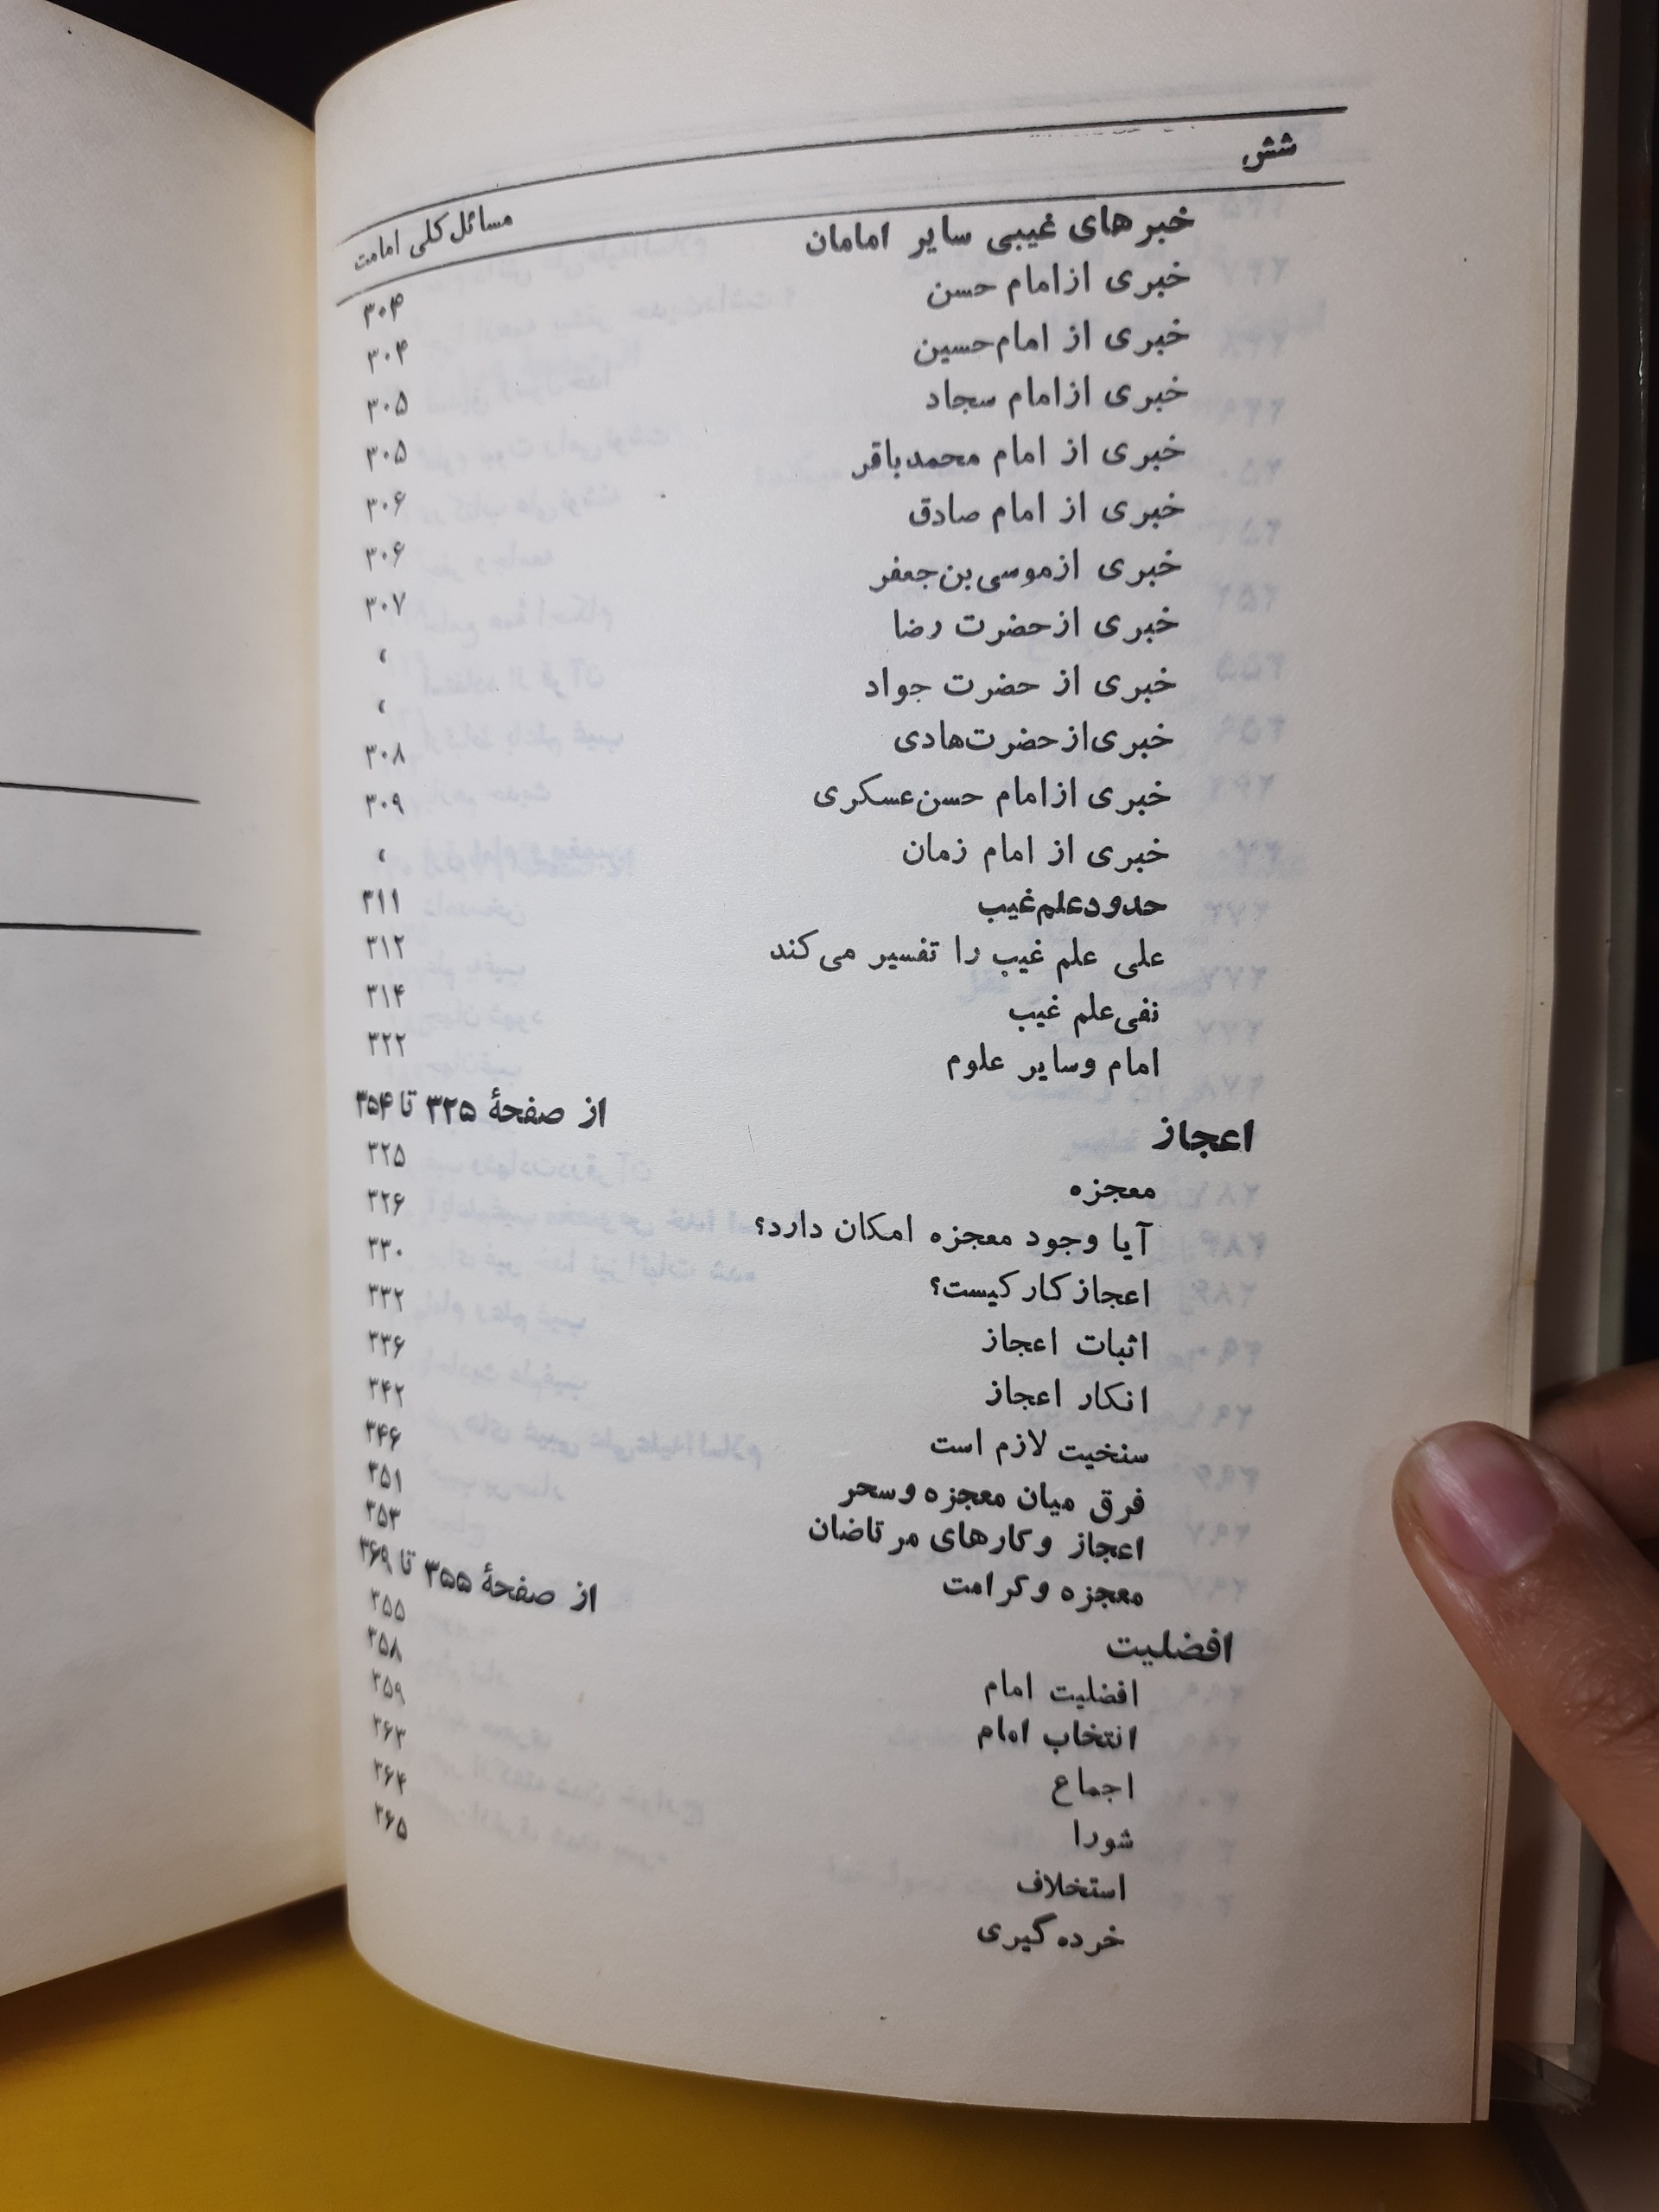 شش مسائل کلی امامت
خبرهای غیبی سایر امامان ۳۰۴
خبری از امام حسن ۳۰۴
خبری از امام حسین ۳۰۵
خبری از امام سجاد ۳۰۵
خبری از امام محمدباقر ۳۰۶
خبری از امام صادق ۳۰۶
خبری از موسی بن جعفر ۳۰۷
خبری از حضرت رضا ،
خبری از حضرت جواد ،
خبری از حضرت هادی ۳۰۸
خبری از امام حسن عسکری ۳۰۹
خبری از امام زمان ،
حدود علم غیب ۳۱۱
علی علم غیب را تفسیر می‌کند ۳۱۲
نفی علم غیب ۳۱۴
امام و سایر علوم ۳۲۲
اعجاز از صفحهٔ ۳۲۵ تا ۳۵۴
معجزه ۳۲۵
آیا وجود معجزه امکان دارد؟ ۳۲۶
اعجاز کار کیست؟ ۳۳۰
اثبات اعجاز ۳۳۲
انکار اعجاز ۳۳۶
سنخیت لازم است ۳۴۲
فرق میان معجزه و سحر ۳۴۶
اعجاز و کارهای مرتاضان ۳۵۱
معجزه و کرامت ۳۵۳
افضلیت از صفحهٔ ۳۵۵ تا ۳۶۹
افضلیت امام ۳۵۵
انتخاب امام ۳۵۸
اجماع ۳۵۹
شورا ۳۶۳
استخلاف ۳۶۴
خرده گیری ۳۶۵